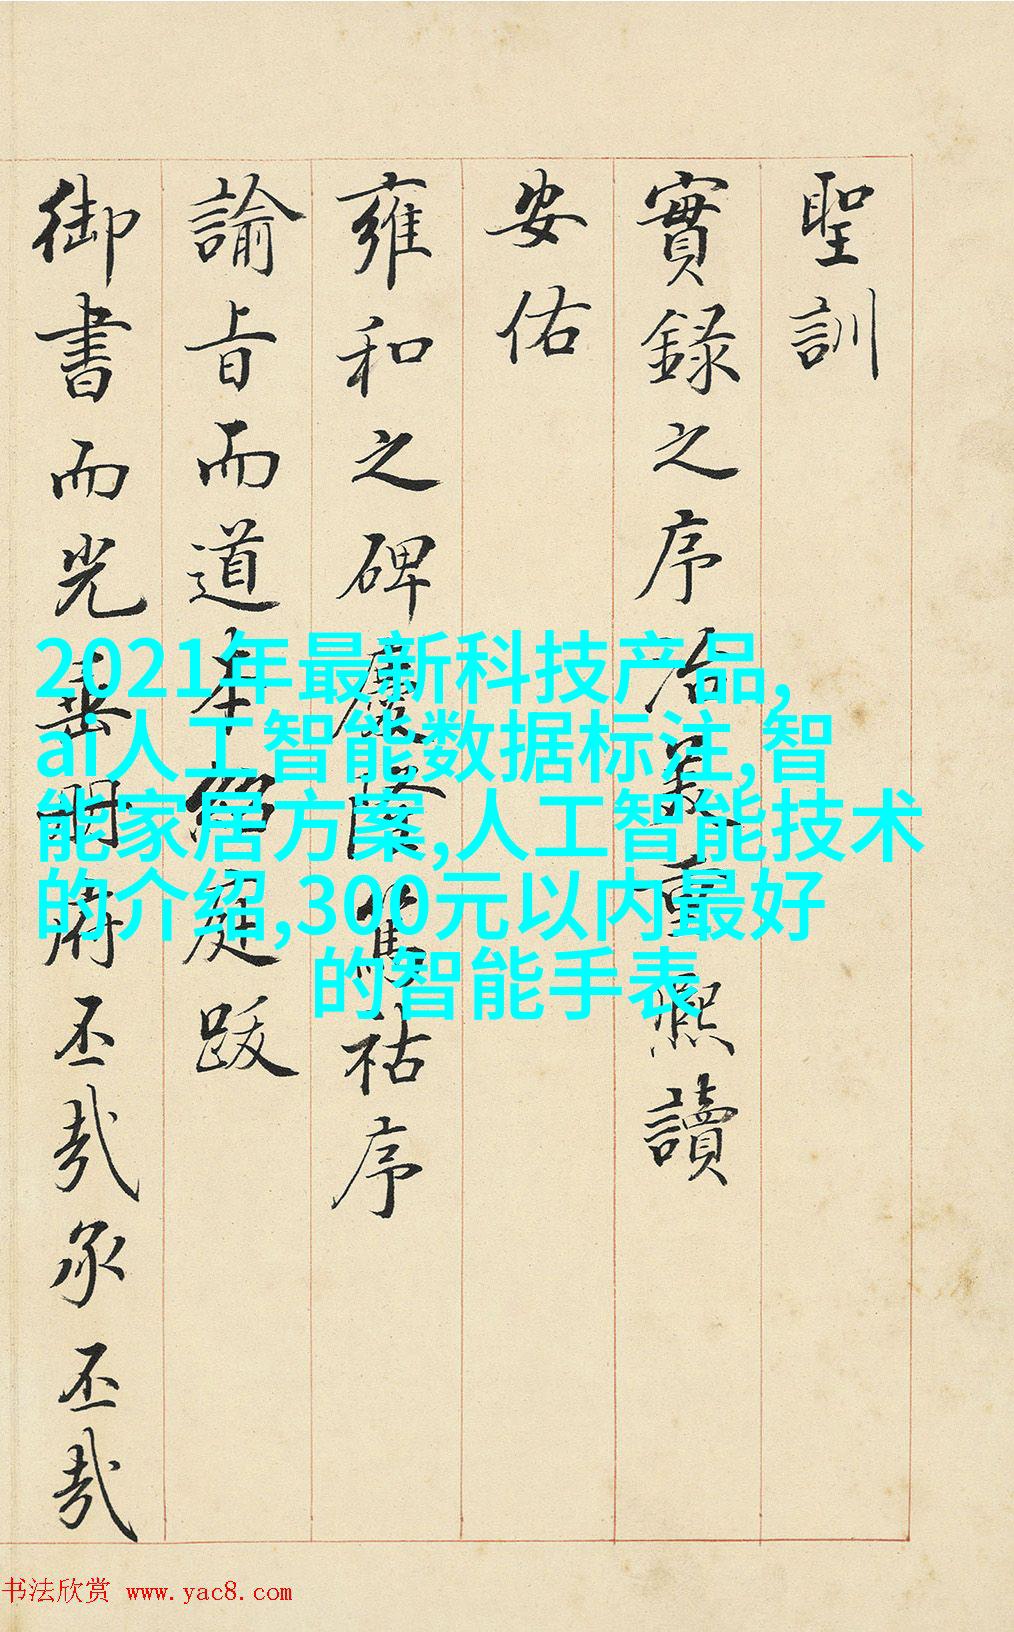 聖訓
實錄之序洽累重熙讀
安佑
雍和之碑慶隆篤祜序
諭旨而道本紹庭跋
御書而光垂府丕哉承丕哉
2021年最新科技产品,
ai人工智能数据标注,智
能家居方案,人工智能技术
的介绍,300元以内最好
的智能手表
书法欣赏 www.yac8.com